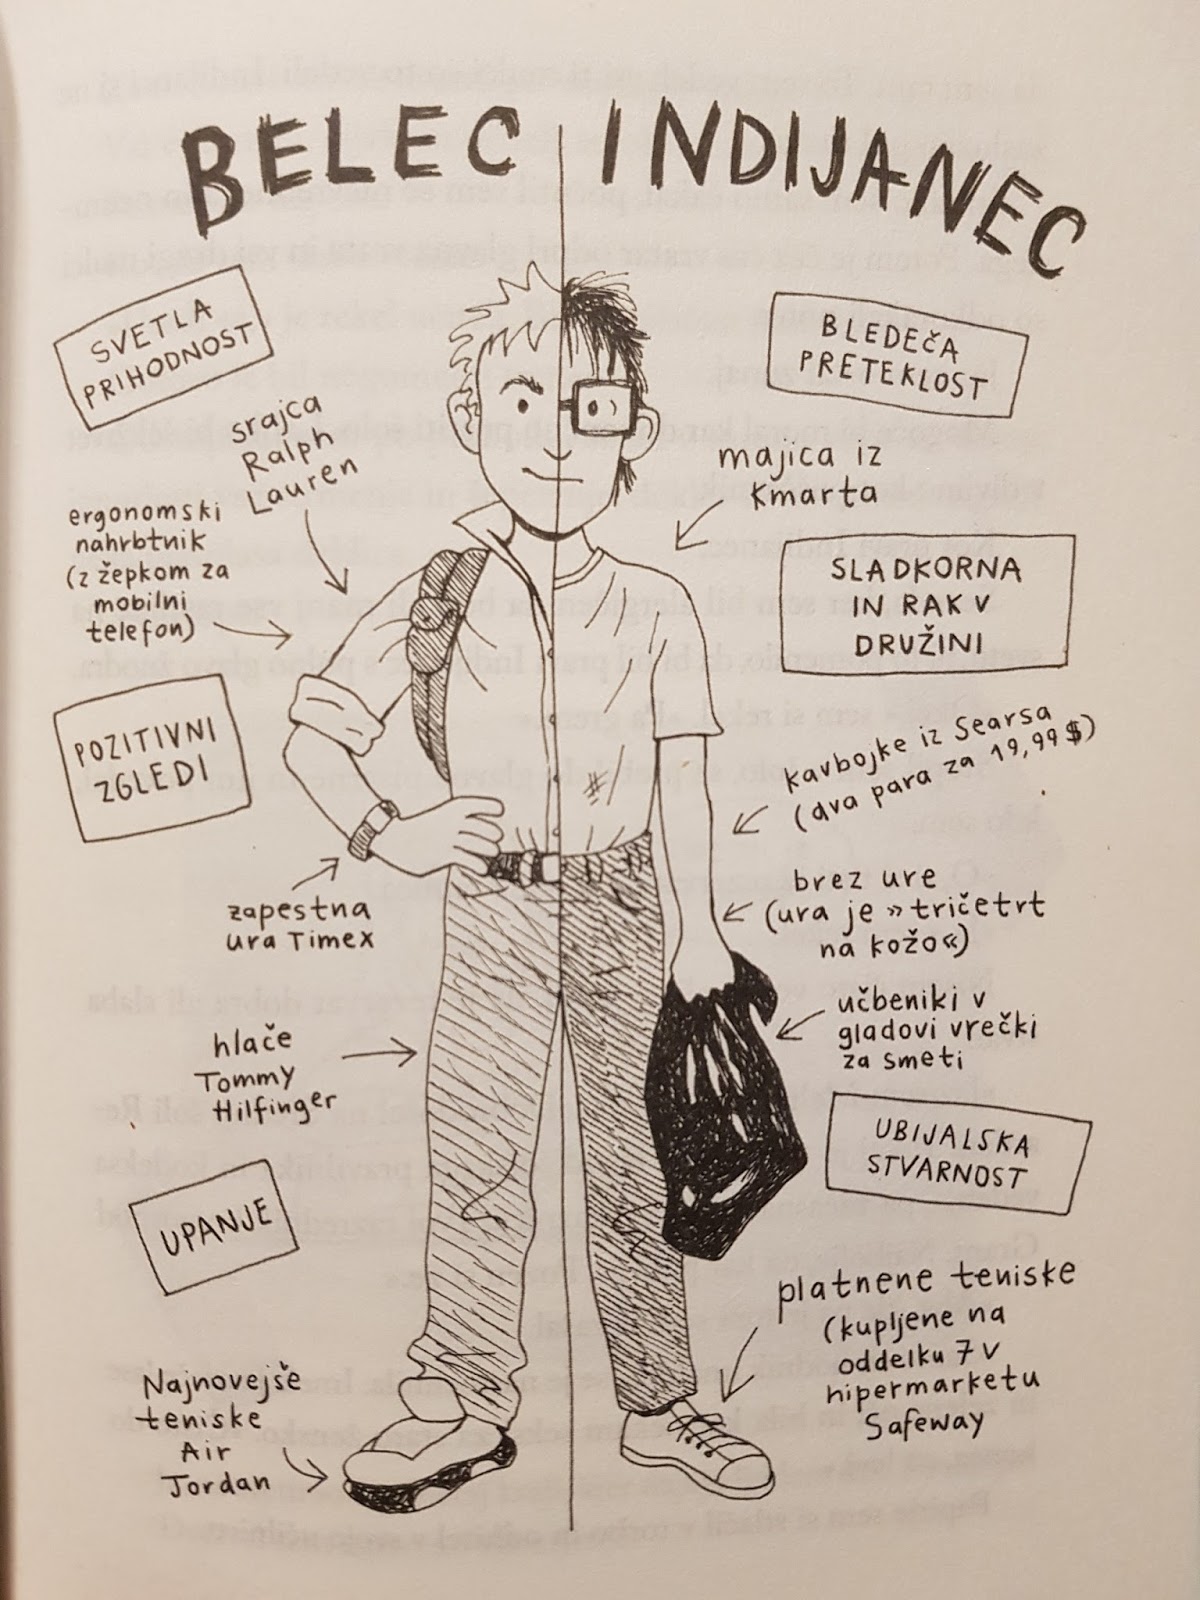 BELEC INDIJANEC
SVETLA
PRIHODNOST
srajca
Ralph
Lauren
ergonomski
nahrbtnik
(z žepkom za
mobilni
telefon)
POZITIVNI
ZGLEDI
zapestna
ura Timex
hlače
Tommy
Hilfinger
UPANJE
Najnovejše
teniske
Air
Jordan
BLEDEČA
PRETEKLOST
majica iz
Kmarta
SLADKORNA
IN RAK V
DRUŽINI
kavbojke iz Searsa
(dva para za 19,99$)
brez ure
(ura je »tričetrt
na kožo«)
učbeniki v
gladovi vrečki
za smeti
UBIJALSKA
STVARNOST
platnene teniske
(kupljene na
oddelku 7 v
hipermarketu
Safeway